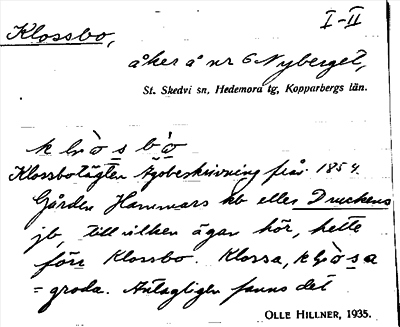 Klossbo,
I-II
åker å nr 6 Nyberget,
St. Skedvi sn, Hedemora tg, Kopparbergs län.
Klossbotägten Ägobeskrivning från 1854.
Gården Hammars kb eller Druckens
jb, till vilken ägan hör, hette
förr Klossbo. Klossa,
= groda. Antagligen fanns det
OLLE HILLNER, 1935.